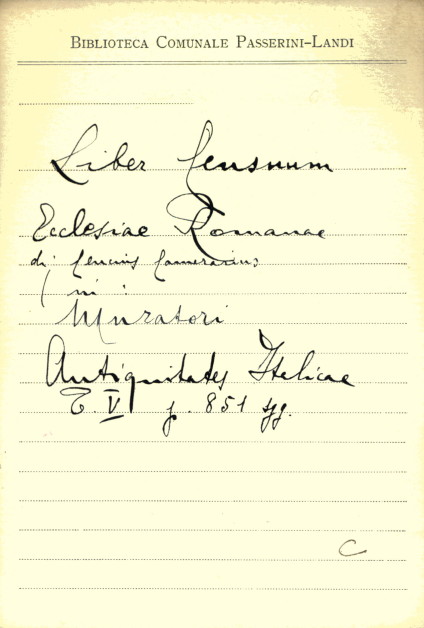 BIBLIOTECA COMUNALE PASSERINI-LANDI
Liber Censuum
Ecclesiae Romanae
di Cencius Camerarius
( in :
Muratori
Antiquitates Italicae
T. V p. 851 sgg.
C